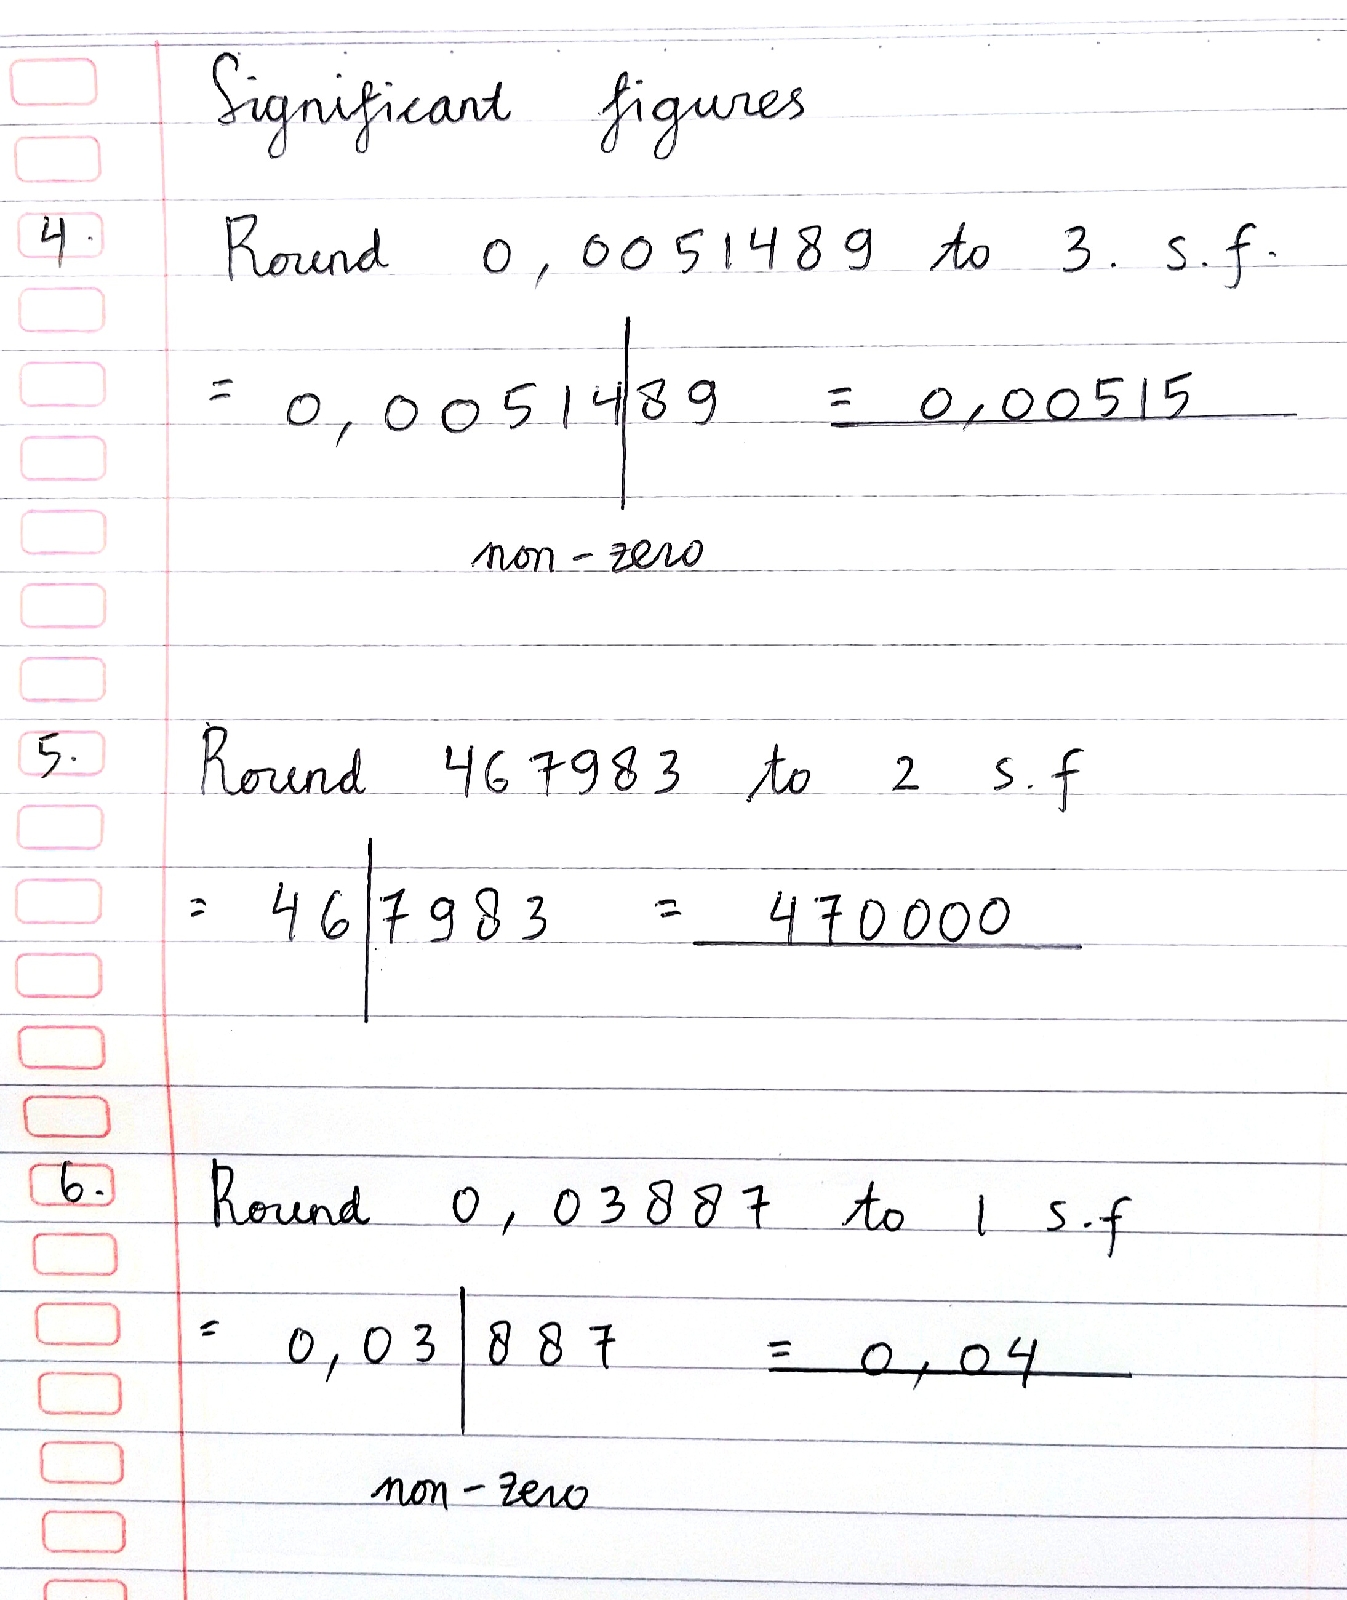 Significant figures
4. Round 0,0051489 to 3. s.f.
= 0,00514|89 = 0,00515
non-zero
5. Round 467983 to 2 s.f
= 46|7983 = 470000
6. Round 0,03887 to 1 s.f
= 0,03|887 = 0,04
non-zero